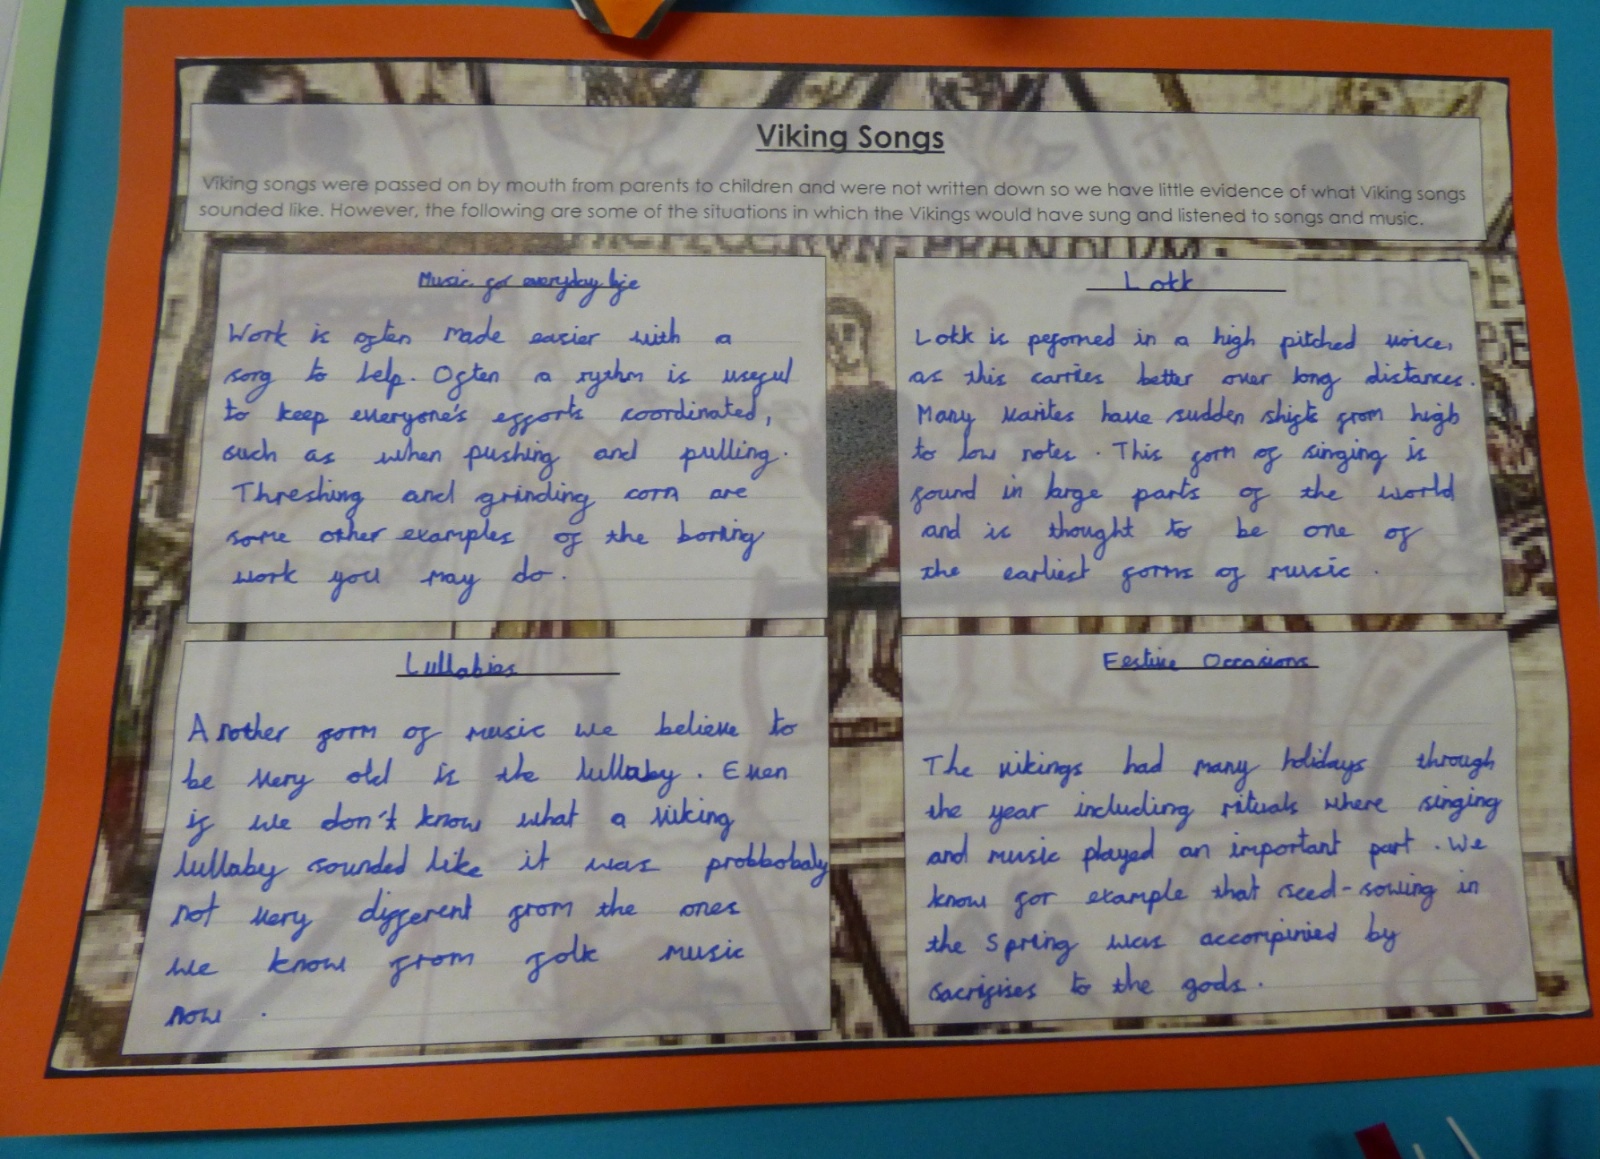 Viking Songs
Viking songs were passed on by mouth from parents to children and were not written down so we have little evidence of what Viking songs
sounded like. However, the following are some of the situations in which the Vikings would have sung and listened to songs and music.
Music for everyday life
Work is often made easier with a
song to help. Often a rythm is useful
to keep everyone's efforts coordinated,
such as when pushing and pulling.
Threshing and grinding corn are
some other examples of the boring
work you may do.
Lokk
Lokk is pefomed in a high pitched voice,
as this carries better over long distances.
Many varites have sudden shifts from high
to low notes. This form of singing is
found in large parts of the world
and is thought to be one of
the earliest forms of music.
Lullabies
Another form of music we believe to
be very old is the lullaby. Even
if we don't know what a Viking
lullaby sounded like it was probbobaly
not very different from the ones
we know from folk music
now.
Festive Occasions
The vikings had many holidays through
the year including rituals where singing
and music played an important part. We
know for example that seed-sowing in
the Spring was accompinied by
sacrifises to the gods.
PRANDIVM: